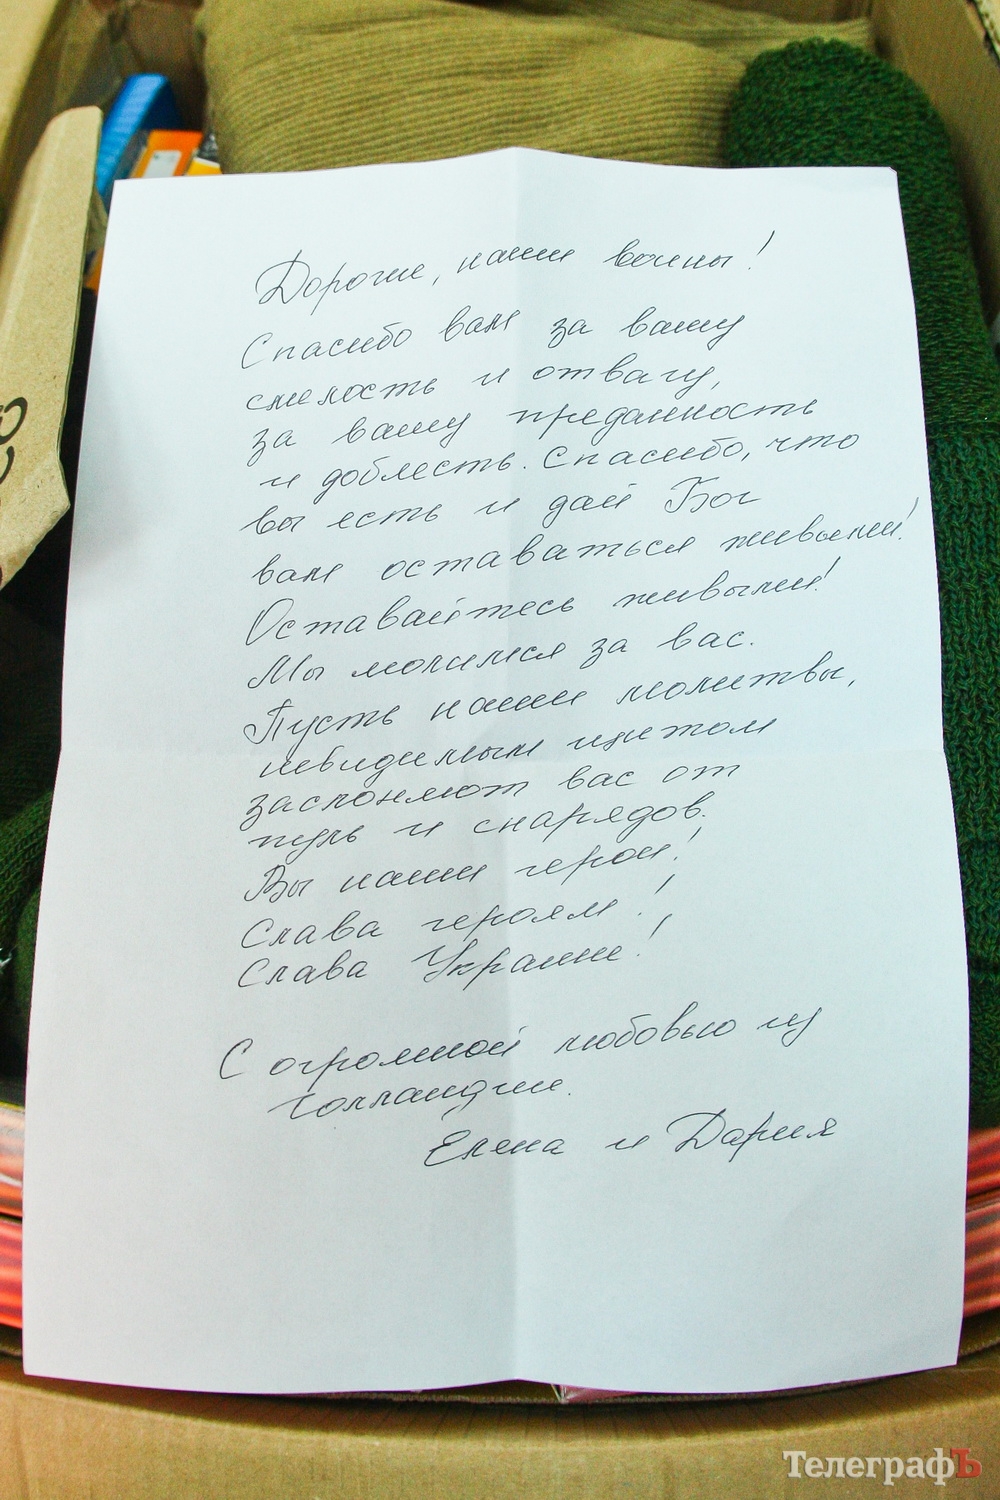 Дорогие, наши воины!
Спасибо вам за вашу
смелость и отвагу,
за вашу преданность
и доблесть. Спасибо, что
вы есть и дай Бог
вам оставаться живыми!
Оставайтесь живыми!
Мы молимся за вас.
Пусть наши молитвы,
невидимым щитом
заслоняют вас от
пуль и снарядов.
Вы наши герои!
Слава героям!
Слава Украине!
С огромной любовью из
Голландии.
Елена и Дария
ТелеграфЪ